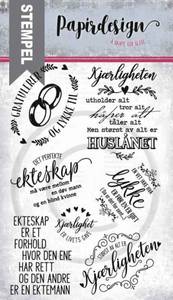 STEMPEL
Papirdesign
GRATULERER
OG LYKKE TIL
Kjærligheten
utholder alt
tror alt
håper alt
tåler alt
Men størst av alt er
HUSLÅNET
DET PERFEKTE
ekteskap
må være mellom
en døv mann
og en blind kvinne
lykke
Kjærlighet
EKTESKAP
ER ET
FORHOLD
HVOR DEN ENE
HAR RETT
OG DEN ANDRE
ER EN EKTEMANN
STØRST AV ALT ER
Kjærligheten